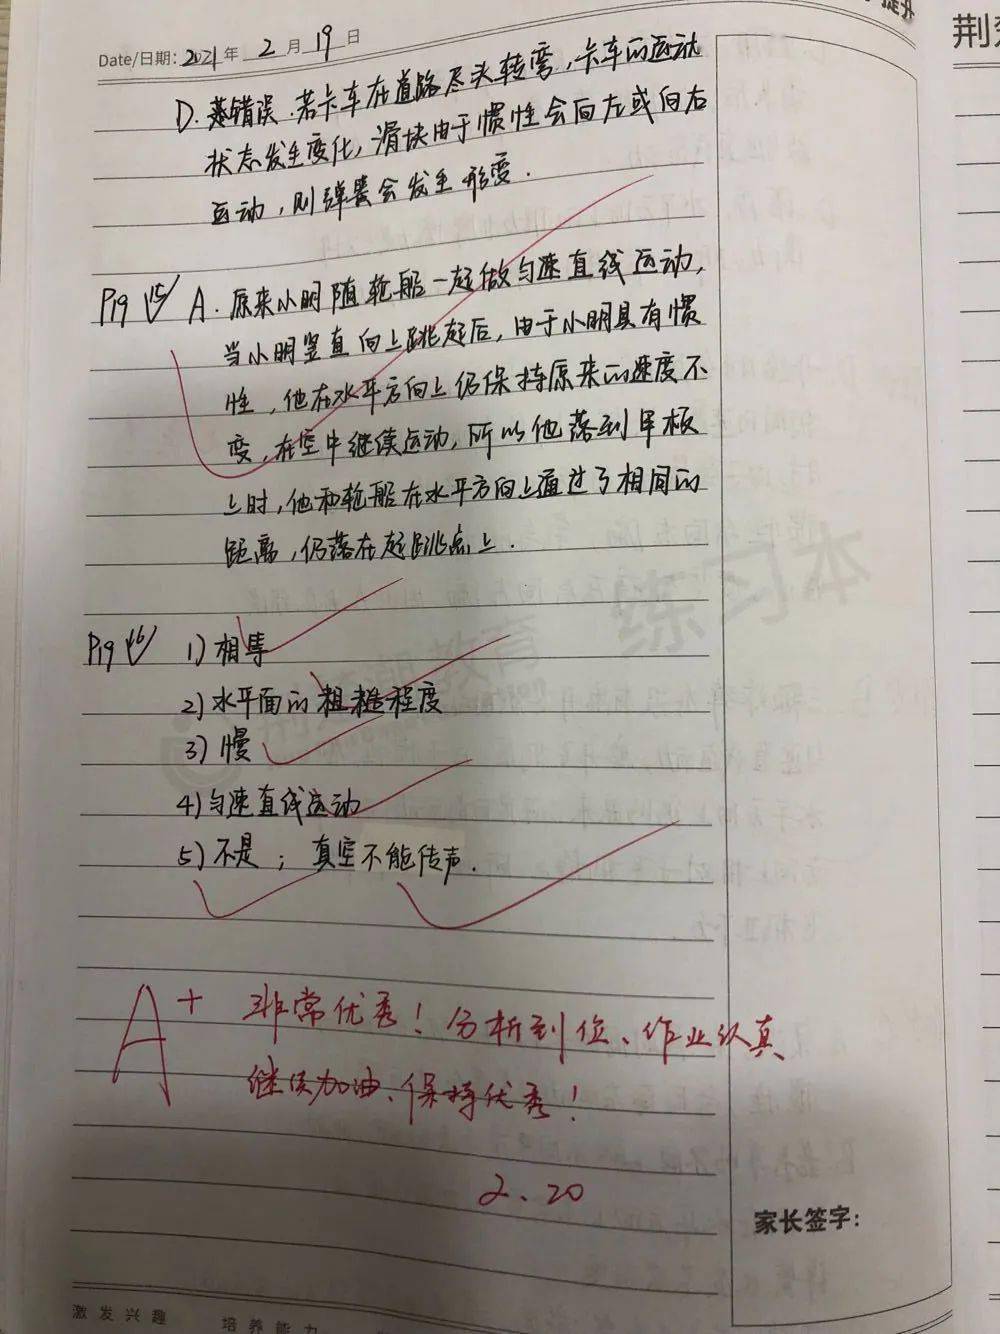 Date/日期: 2021年 2月 19日
D. 错误.若卡车在道路尽头转弯,卡车的运动
状态发生变化,滑块由于惯性会向左或向右
运动,则弹簧会发生形变.
P19 15 A. 原来小明随轮船一起做匀速直线运动,
当小明竖直向上跳起后,由于小明具有惯
性,他在水平方向上仍保持原来的速度不
变,在空中继续运动,所以他落到甲板
上时,他和轮船在水平方向上通过了相同的
距离,仍落在起跳点上.
P19 16 1) 相等
2) 水平面的粗糙程度
3) 慢
4) 匀速直线运动
5) 不是; 真空不能传声.
A+ 非常优秀!分析到位、作业认真
继续加油、保持优秀!
2、20
家长签字:
激发兴趣
培养能力
荆
提升
教育
练习本